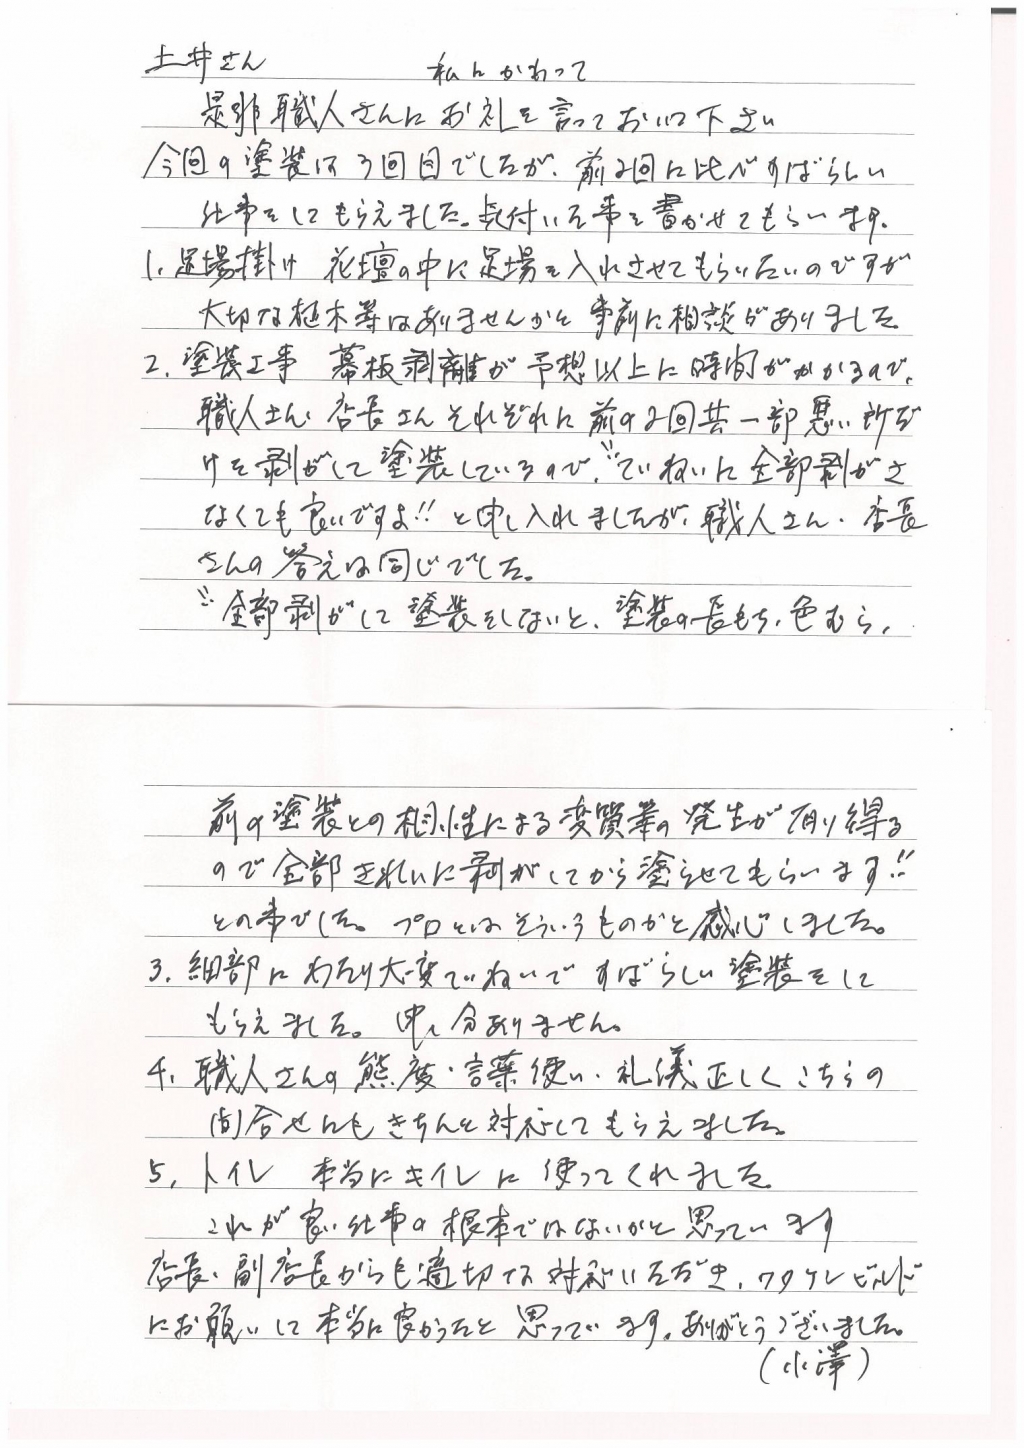 土井さん　　　私にかわって
是非職人さんにお礼を言っておいて下さい
今回の塗装は3回目でしたが、前2回に比べすばらしい
仕事をしてもらえました。気付いた事を書かせてもらいます。
1. 足場掛け　花壇の中に足場を入れさせてもらいたいのですが
大切な植木等はありませんかと事前に相談がありました
2. 塗装工事　幕板剥離が予想以上に時間がかかるので、
職人さん・店長さんそれぞれに前の2回共一部悪い所だ
けを剥がして塗装しているので、〃ていねいに全部剥がさ
なくても良いですよ!!と申し入れましたが、職人さん・店長
さんの答えは同じでした。
〃全部剥がして塗装をしないと、塗装の長もち、色むら、
前の塗装との相性による変質等の発生が有り得る
ので全部きれいに剥がしてから塗らせてもらいます!!
との事でした。プロとはそういうものかと感心しました。
3. 細部にわたり大変ていねいですばらしい塗装をして
もらえました。申し分ありません。
4. 職人さんの態度・言葉使い・礼儀正しくこちらの
問合せにもきちんと対応してもらえました。
5, トイレ　本当にキイレに使ってくれました。
これが良い仕事の根本ではないかと思っています
店長、副店長からも適切な対応いただき、ワタケンビルド
にお願いして本当に良かったと思っています。ありがとうございました。
(小澤)